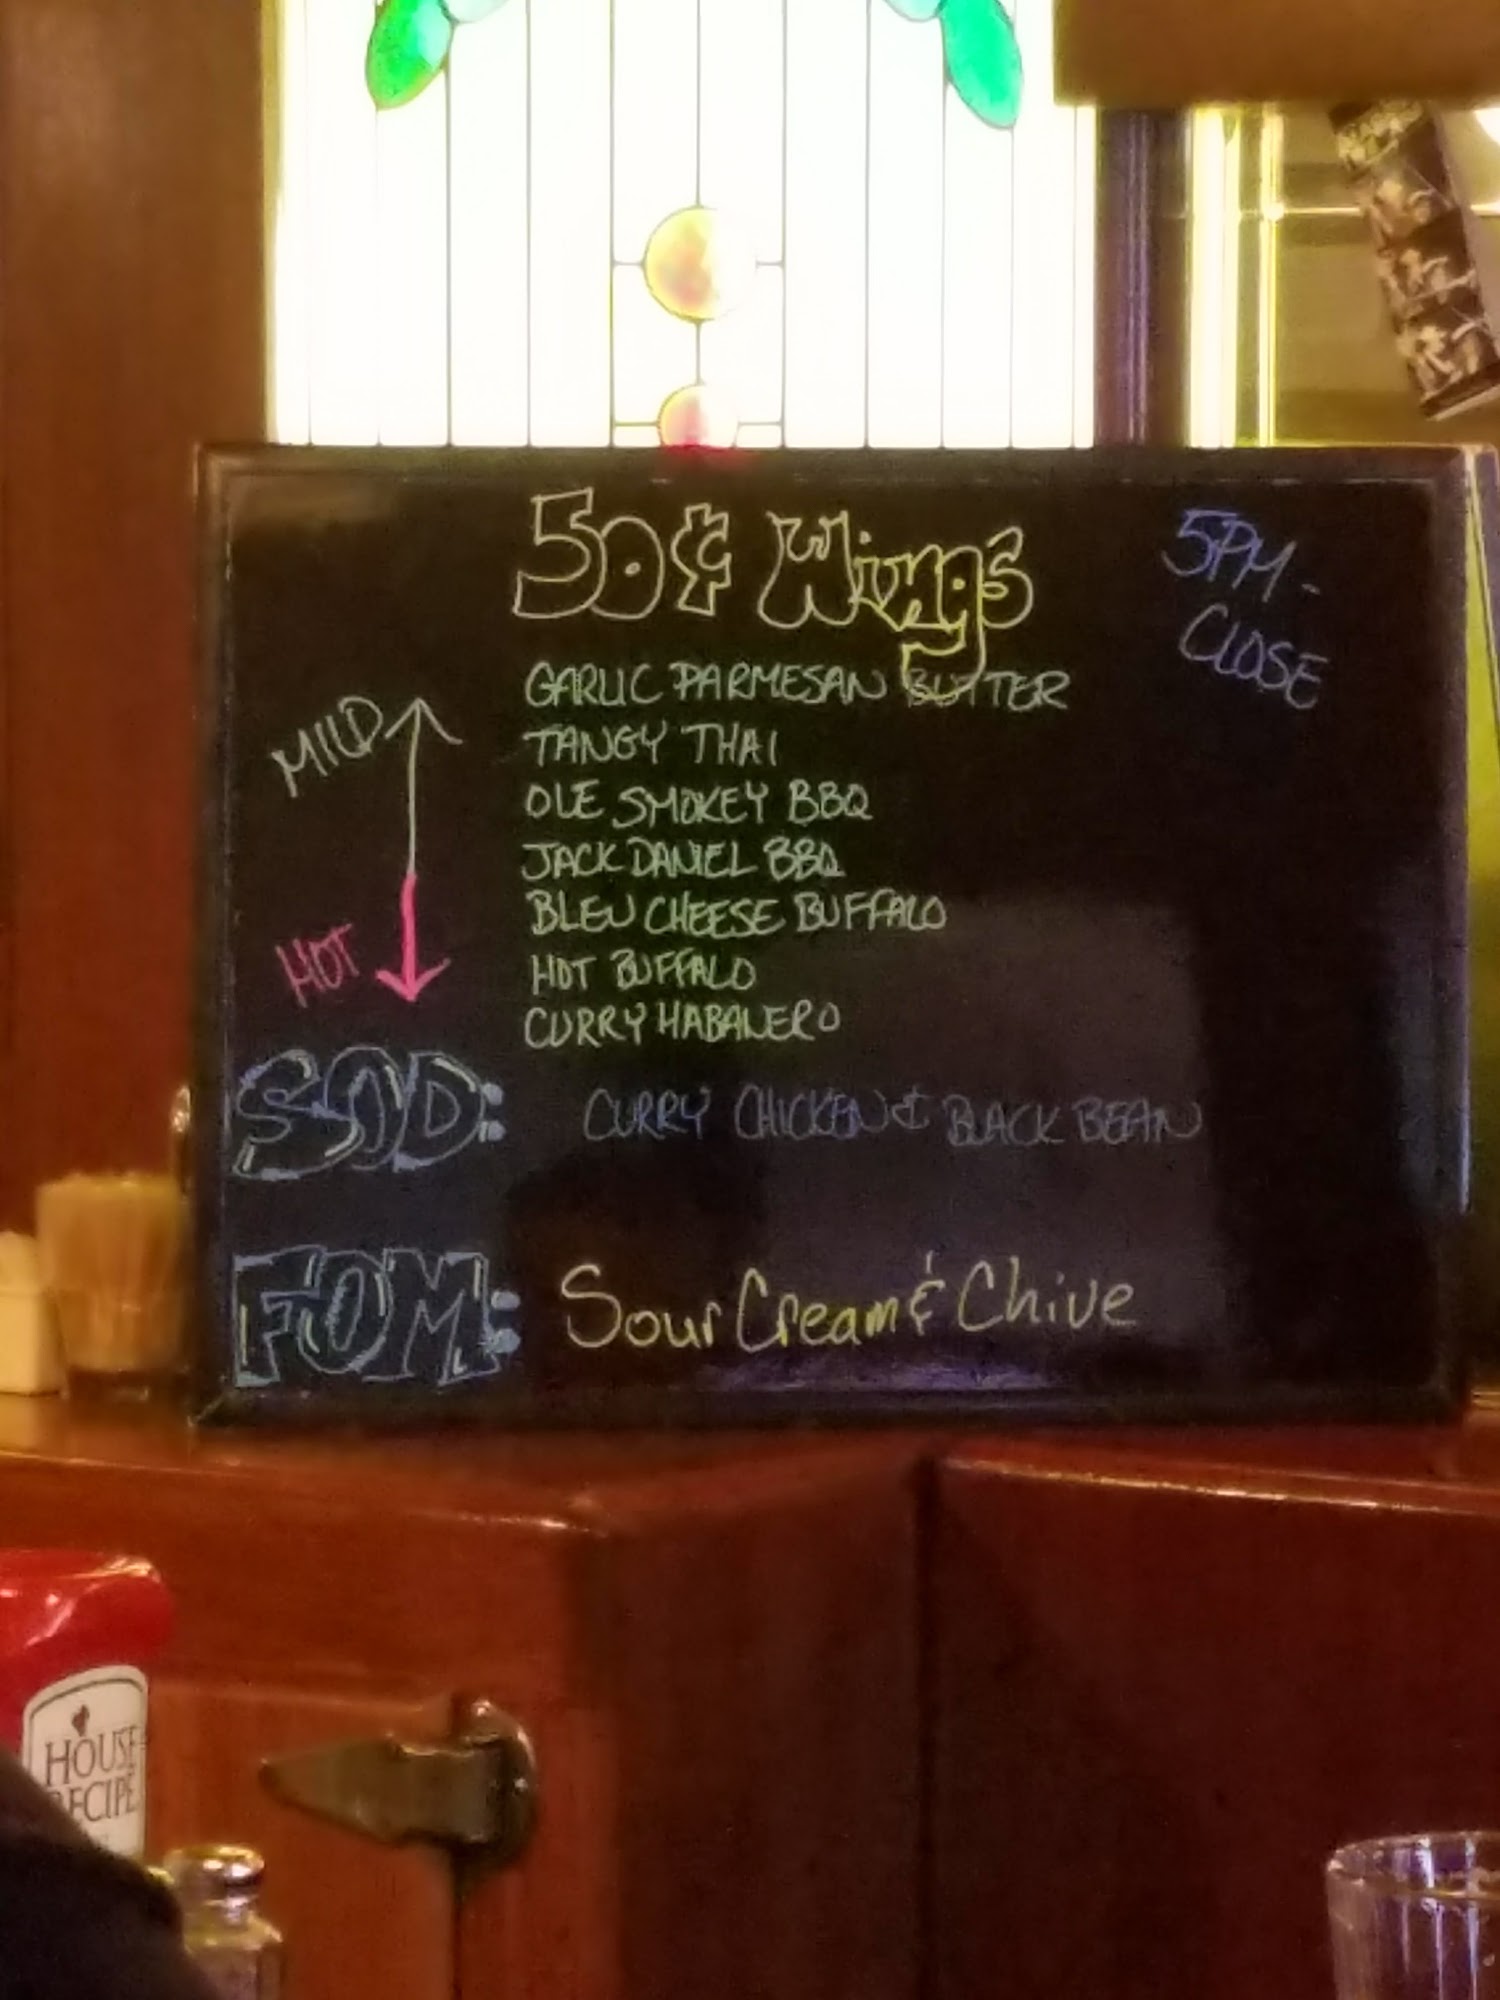 50¢ Wings
5PM -
CLOSE
MILD
HOT
GARLIC PARMESAN BUTTER
TANGY THAI
OLE SMOKEY BBQ
JACK DANIEL BBQ
BLEU CHEESE BUFFALO
HOT BUFFALO
CURRY HABANERO
SOD: CURRY CHICKEN & BLACK BEAN
FOM: Sour Cream & Chive
HOUSE
RECIPE